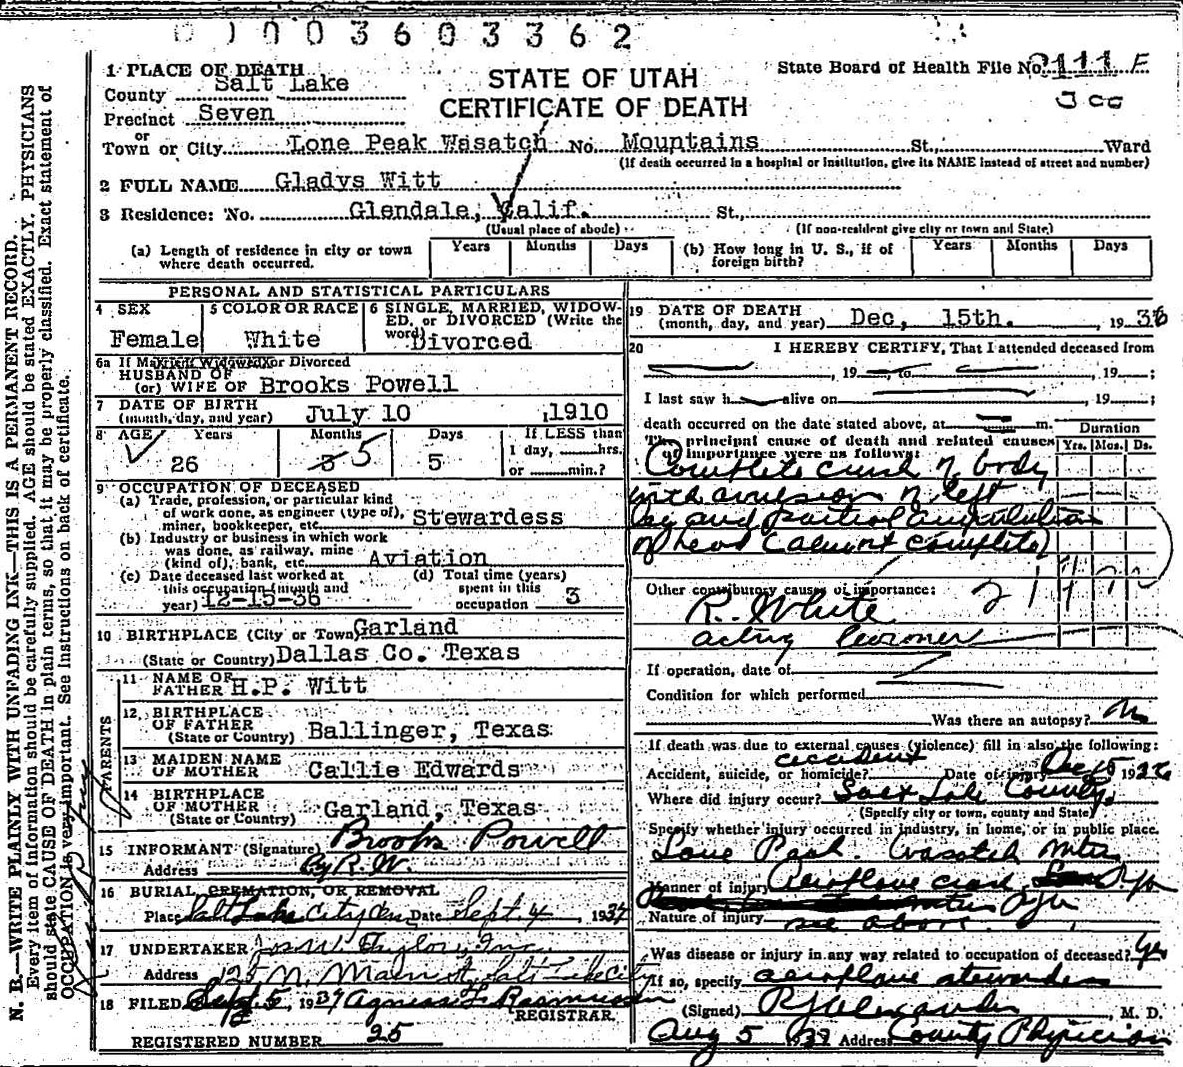 003603362
State Board of Health File No. 2111 F
1 PLACE OF DEATH
STATE OF UTAH
CERTIFICATE OF DEATH
County Salt Lake
Precinct Seven
or
Town or City Lone Peak Wasatch No. Mountains St. Ward
(If death occurred in a hospital or institution, give its NAME instead of street and number)
2 FULL NAME Gladys Witt
3 Residence: No. Glendale, Calif. St.,
(Usual place of abode) (If non-resident give city or town and State)
(a) Length of residence in city or town where death occurred. Years Months Days (b) How long in U. S., if of foreign birth? Years Months Days
PERSONAL AND STATISTICAL PARTICULARS
4 SEX Female
5 COLOR OR RACE White
6 SINGLE, MARRIED, WIDOWED, or DIVORCED (Write the word) Divorced
6a If Married Widowed or Divorced
HUSBAND OF
(or) WIFE OF Brooks Powell
7 DATE OF BIRTH
(month, day, and year) July 10, 1910
8 AGE Years 26 Months 5 Days 5 If LESS than 1 day, hrs. or min.?
9 OCCUPATION OF DECEASED
(a) Trade, profession, or particular kind
of work done, as engineer (type of),
miner, bookkeeper, etc. Stewardess
(b) Industry or business in which work
was done, as railway, mine
(kind of), bank, etc. Aviation
(c) Date deceased last worked at
this occupation (month and
year) 12-15-36
(d) Total time (years)
spent in this
occupation 3
10 BIRTHPLACE (City or Town) Garland
(State or Country) Dallas Co. Texas
PARENTS
11 NAME OF
FATHER H.P. Witt
12 BIRTHPLACE
OF FATHER
(State or Country) Ballinger, Texas
13 MAIDEN NAME
OF MOTHER Callie Edwards
14 BIRTHPLACE
OF MOTHER
(State or Country) Garland, Texas
15 INFORMANT (Signature) Brooks Powell
Address By R. W.
16 BURIAL, CREMATION, OR REMOVAL
Place Salt Lake City Cem Date Sept. 4, 1937
17 UNDERTAKER Jos. W. Taylor, Inc.
Address 125 N. Main St. Salt Lake City
18 FILED Sept. 5, 1937 Agness F. Rasmussen
REGISTRAR.
REGISTERED NUMBER 25
19 DATE OF DEATH
(month, day, and year) Dec, 15th. , 1936
20 I HEREBY CERTIFY, That I attended deceased from
, 19 , to , 19 ;
I last saw h alive on , 19 ;
death occurred on the date stated above, at m.
The principal cause of death and related causes
of importance were as follows:
Duration
Yrs. Mos. Ds.
Complete crush of body
with avulsion of left
leg and partial amputation
of head (almost complete)
Other contributory causes of importance:
R. White
acting Coroner
If operation, date of
Condition for which performed
Was there an autopsy? No
If death was due to external causes (violence) fill in also the following:
Accident, suicide, or homicide? accident Date of injury Dec 15 1936
Where did injury occur? Salt Lake County,
(Specify city or town, county and State)
Specify whether injury occurred in industry, in home, or in public place.
Lone Peak. Wasatch Mtns
Manner of injury Aeroplane crash
Nature of injury see above.
Was disease or injury in any way related to occupation of deceased? Yes
If so, specify aeroplane stewardess
(Signed) R J Alexander, M. D.
Aug 5 1937 Address County Physician
N. B.—WRITE PLAINLY WITH UNFADING INK—THIS IS A PERMANENT RECORD.
Every item of information should be carefully supplied. AGE should be stated EXACTLY. PHYSICIANS
should state CAUSE OF DEATH in plain terms, so that it may be properly classified. Exact statement of
OCCUPATION is very important. See Instructions on back of certificate.